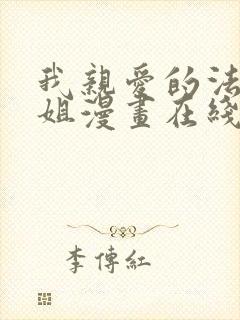 我親愛的法
姐漫畫在綫
李傳紅